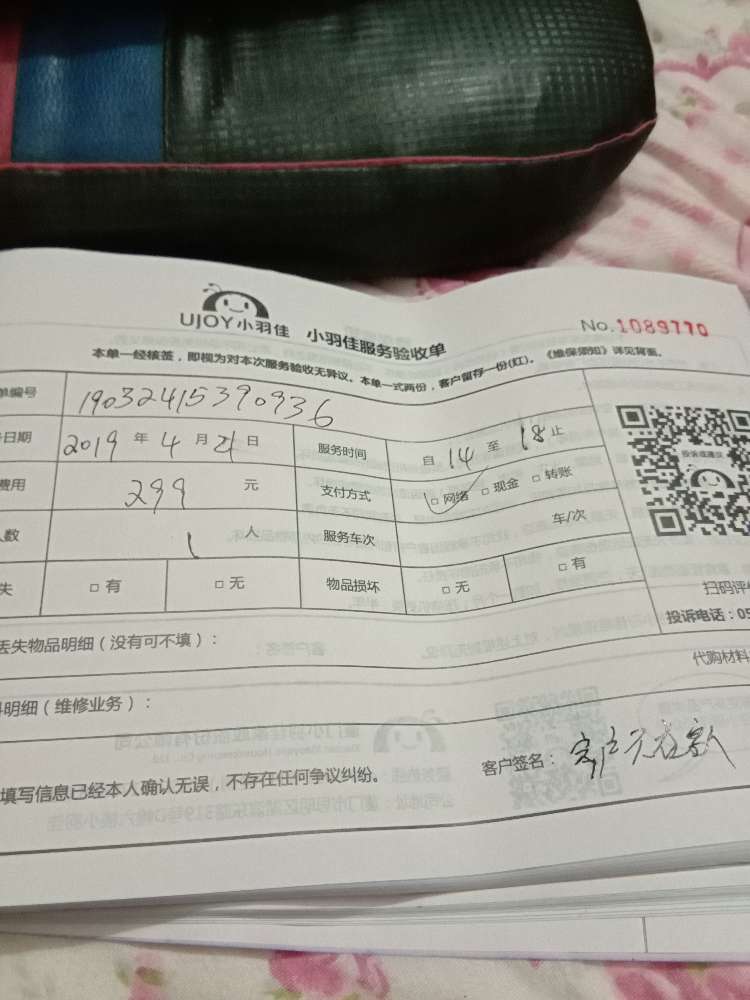 UJOY小羽佳 小羽佳服务验收单
No.1089770
本单一经核签，即视为对本次服务验收无异议。本单一式两份，客户留存一份(红)。《维保须知》详见背面。
单编号 19032415390936
日期 2019 年 4 月 21 日 服务时间 自 14 至 18 止
费用 299 元 支付方式 □ 网络 □ 现金 □ 转账
人数 1 人 服务车次 车/次
失 □ 有 □ 无 物品损坏 □ 无 □ 有
投诉或建议
扫码评价
投诉电话：05
丢失物品明细（没有可不填）：
代购材料
料明细（维修业务）：
填写信息已经本人确认无误，不存在任何争议纠纷。
客户签名：客户不在家